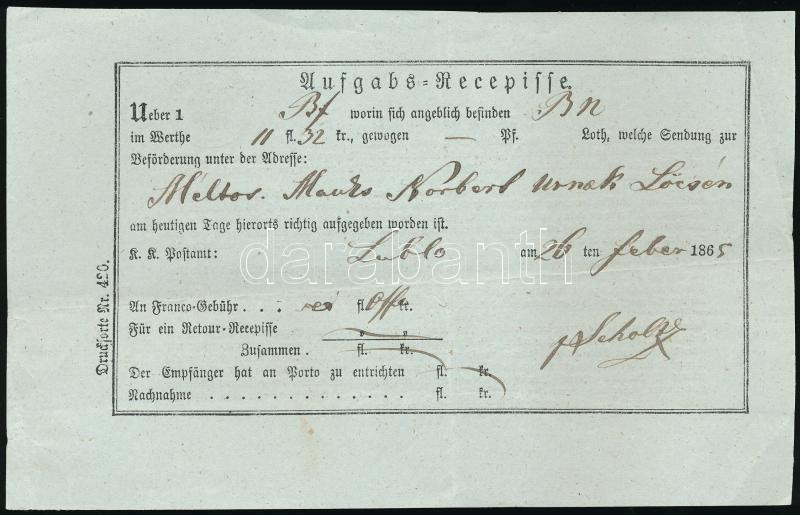 Aufgabs-Recepisse.
Ueber 1 Bf worin sich angeblich befinden BN
im Werthe 11 fl. 32 kr., gewogen — Pf. Loth, welche Sendung zur
Beförderung unter der Adresse:
Méltos. Mauks Norbert urnak Löcsén
am heutigen Tage hierorts richtig aufgegeben worden ist.
K. K. Postamt: Lublo am 26 ten feber 1865
An Franco-Gebühr . . . fl. kr.
Für ein Retour-Recepisse " "
Scholz
Zusammen . fl. kr.
Der Empfänger hat an Porto zu entrichten fl. kr.
Nachnahme . . . . . . . . . . . . . fl. kr.
Drucksorte Nr. 420.
darabanth